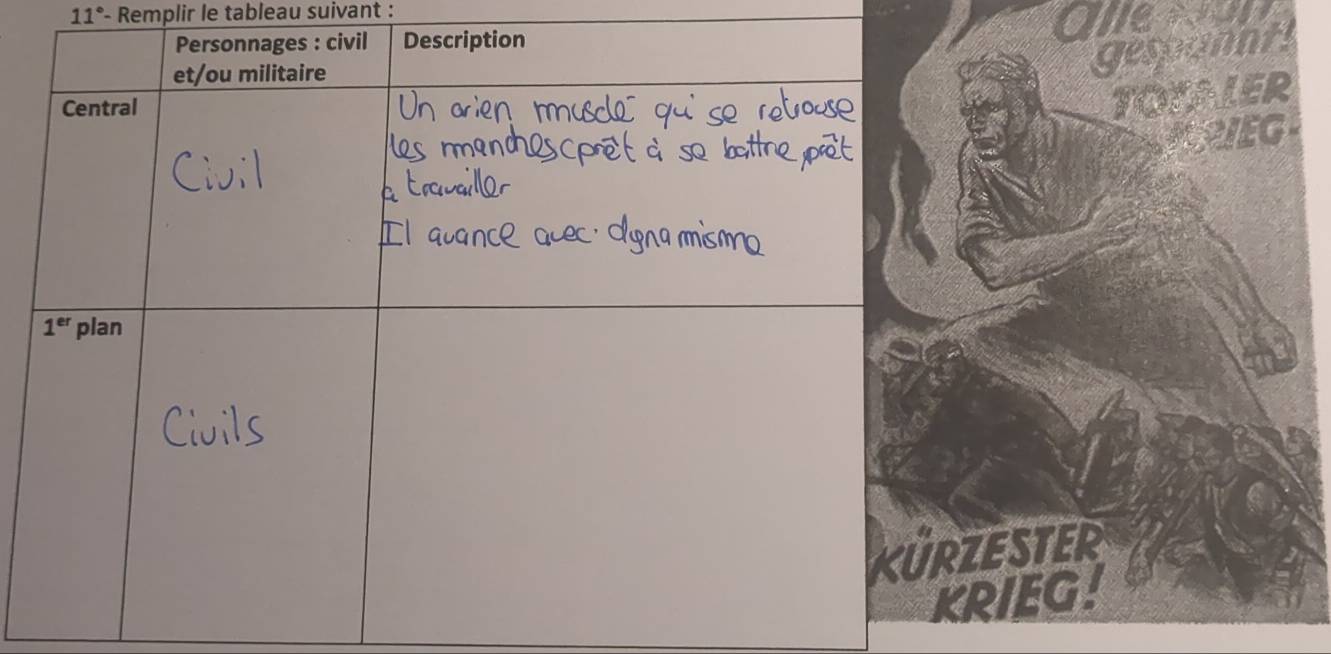 11°- Remplir le tableau suivant :
Personnages : civil
et/ou militaire
Description
Central
Civil
Un arien musclé qui se retrouse
les manches (prêt à se battre, prêt
à travailler
Il avance avec dynamisme
1er plan
Civils
alle
gespannt!
TOTALER
KRIEG-
KÜRZESTER
KRIEG!